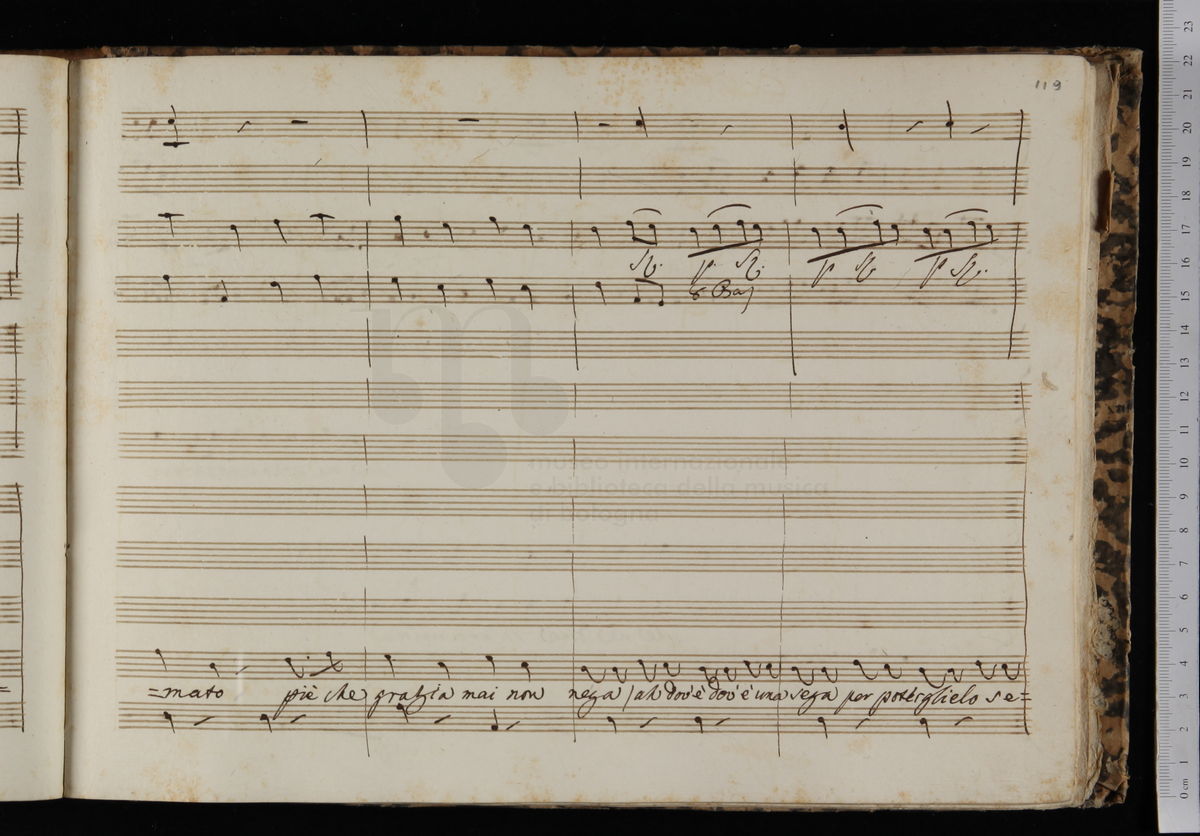 119
Sf. p. Sf. p Sf p Sf.
Bas
=mato piè che grazia mai non nega /ah dov'è dov'è una sega per poterglielo se=
museo internazionale
e biblioteca della musica
di bologna
23
22
21
20
19
18
17
16
15
14
13
12
11
10
9
8
7
6
5
4
3
2
1
0 cm